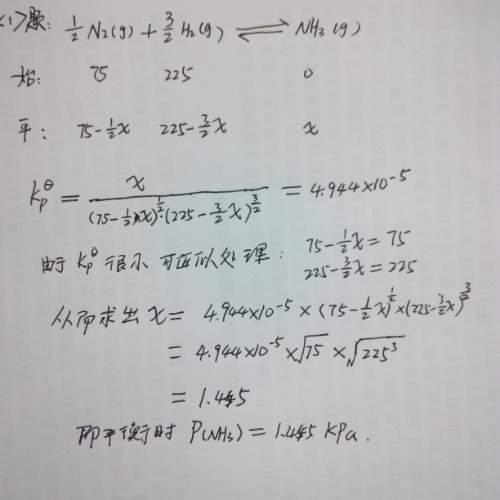 <1>题: 1/2 N2(g) + 3/2 H2(g) ⇌ NH3(g)
始: 75 225 0
平: 75-1/2x 225-3/2x x
Kp^θ = x / (75-1/2x)^(1/2) (225-3/2x)^(3/2) = 4.944×10^-5
由于 Kp^θ 很小 可近似处理: 75-1/2x = 75
225-3/2x = 225
从而求出 x = 4.944×10^-5 × (75-1/2x)^(1/2) × (225-3/2x)^(3/2)
= 4.944×10^-5 × √75 × √225^3
= 1.445
即平衡时 P(NH3) = 1.445 KPa.